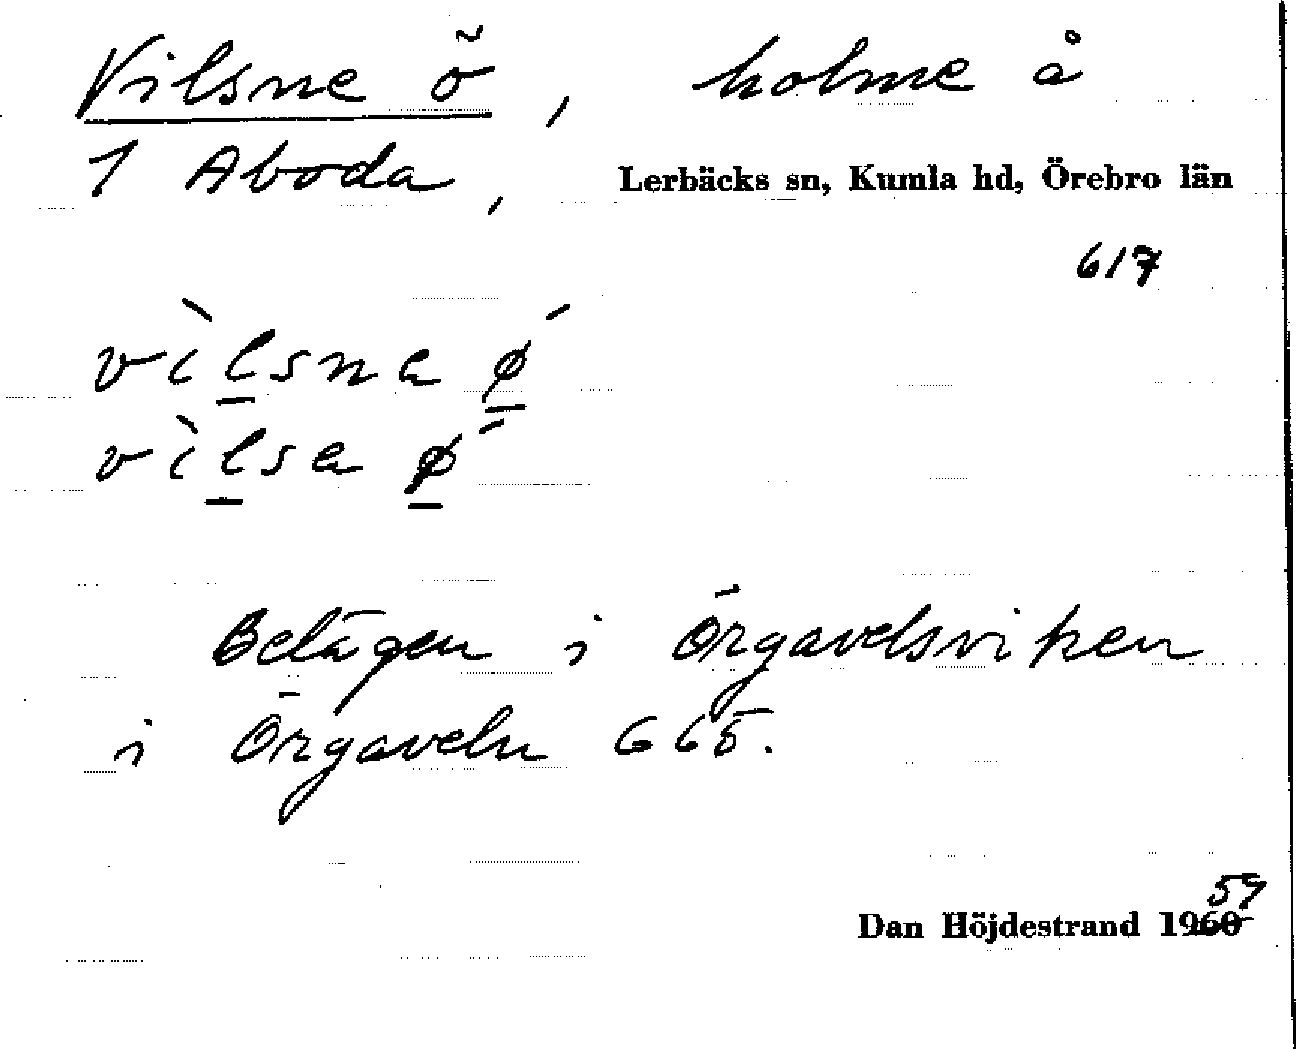 Vilsne ö, holme å
1 Aboda, Lerbäcks sn, Kumla hd, Örebro län
617
vìlsna ǿ
vìlsa ǿ
Belägen i Örgavelsviken
i Örgaveln 665.
59
Dan Höjdestrand 1960